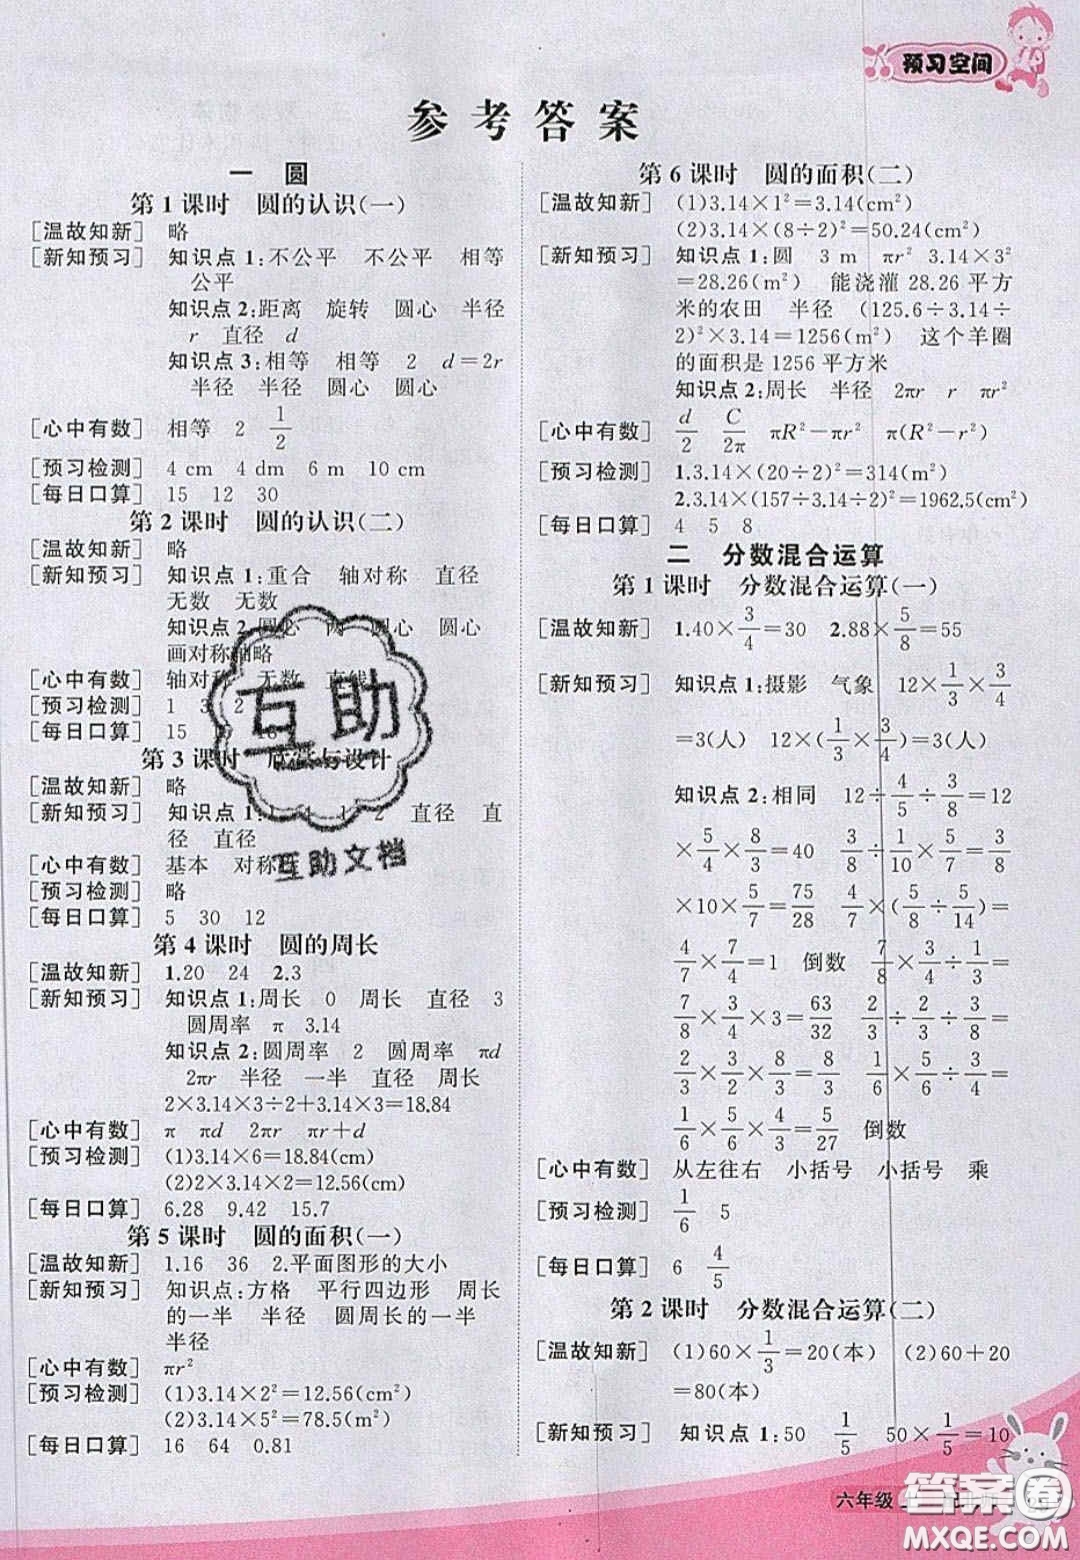 预习空间
参考答案
一 圆
第1课时 圆的认识(一)
[温故知新] 略
[新知预习] 知识点1:不公平 不公平 相等
公平
知识点2:距离 旋转 圆心 半径
r 直径 d
知识点3:相等 相等 2 d=2r
半径 半径 圆心 圆心
[心中有数] 相等 2 1/2
[预习检测] 4 cm 4 dm 6 m 10 cm
[每日口算] 15 12 30
第2课时 圆的认识(二)
[温故知新] 略
[新知预习] 知识点1:重合 轴对称 直径
无数 无数
知识点2:圆心 两 圆心 圆心
画对称轴略
[心中有数] 轴对称 无数 直线
[预习检测] 1 3 2
[每日口算] 15
第3课时 欣赏与设计
[温故知新] 略
[新知预习] 知识点1: 1 2 直径 直
径 直径
[心中有数] 基本 对称
[预习检测] 略
[每日口算] 5 30 12
第4课时 圆的周长
[温故知新] 1.20 24 2.3
[新知预习] 知识点1:周长 0 周长 直径 3
圆周率 π 3.14
知识点2:圆周率 2 圆周率 πd
2πr 半径 一半 直径 周长
2×3.14×3÷2+3.14×3=18.84
[心中有数] π πd 2πr πr+d
[预习检测] (1)3.14×6=18.84(cm)
(2)2×3.14×2=12.56(cm)
[每日口算] 6.28 9.42 15.7
第5课时 圆的面积(一)
[温故知新] 1.16 36 2.平面图形的大小
[新知预习] 知识点:方格 平行四边形 周长
的一半 半径 圆周长的一半
半径
[心中有数] πr²
[预习检测] (1)3.14×2²=12.56(cm²)
(2)3.14×5²=78.5(m²)
[每日口算] 16 64 0.81
第6课时 圆的面积(二)
[温故知新] (1)3.14×1²=3.14(cm²)
(2)3.14×(8÷2)²=50.24(cm²)
[新知预习] 知识点1:圆 3 m πr² 3.14×3²
=28.26(m²) 能浇灌28.26平方
米的农田 半径 (125.6÷3.14÷
2)²×3.14=1256(m²) 这个羊圈
的面积是1256平方米
知识点2:周长 半径 2πr r πr²
[心中有数] d/2 C/2π πR²-πr² π(R²-r²)
[预习检测] 1.3.14×(20÷2)²=314(m²)
2.3.14×(157÷3.14÷2)²=1962.5(cm²)
[每日口算] 4 5 8
二 分数混合运算
第1课时 分数混合运算(一)
[温故知新] 1.40×3/4=30 2.88×5/8=55
[新知预习] 知识点1:摄影 气象 12×1/3×3/4
=3(人) 12×(1/3×3/4)=3(人)
知识点2:相同 12÷4/5÷3/8=12
×5/4×8/3=40 3/8÷1/10×5/7=3/8
×10×5/7=75/28 3/4×5/7÷(5/8×5/14)=
4/7×7/4=1 倒数 7/8×3/4÷1/3=
7/8×3/4×3=63/32 2/3÷2/3÷3/4=
2/3×3/2×4/3=4/3 1/6÷6/5÷3/4=
1/6×5/6×4/3=5/27 倒数
[心中有数] 从左往右 小括号 小括号 乘
[预习检测] 1/6 5
[每日口算] 6 4/5
第2课时 分数混合运算(二)
[温故知新] (1)60×1/3=20(本) (2)60+20
=80(本)
[新知预习] 知识点1:50 1/5 50×1/5=10
六年级
互助
互助文档
答案圈
MXQE.COM